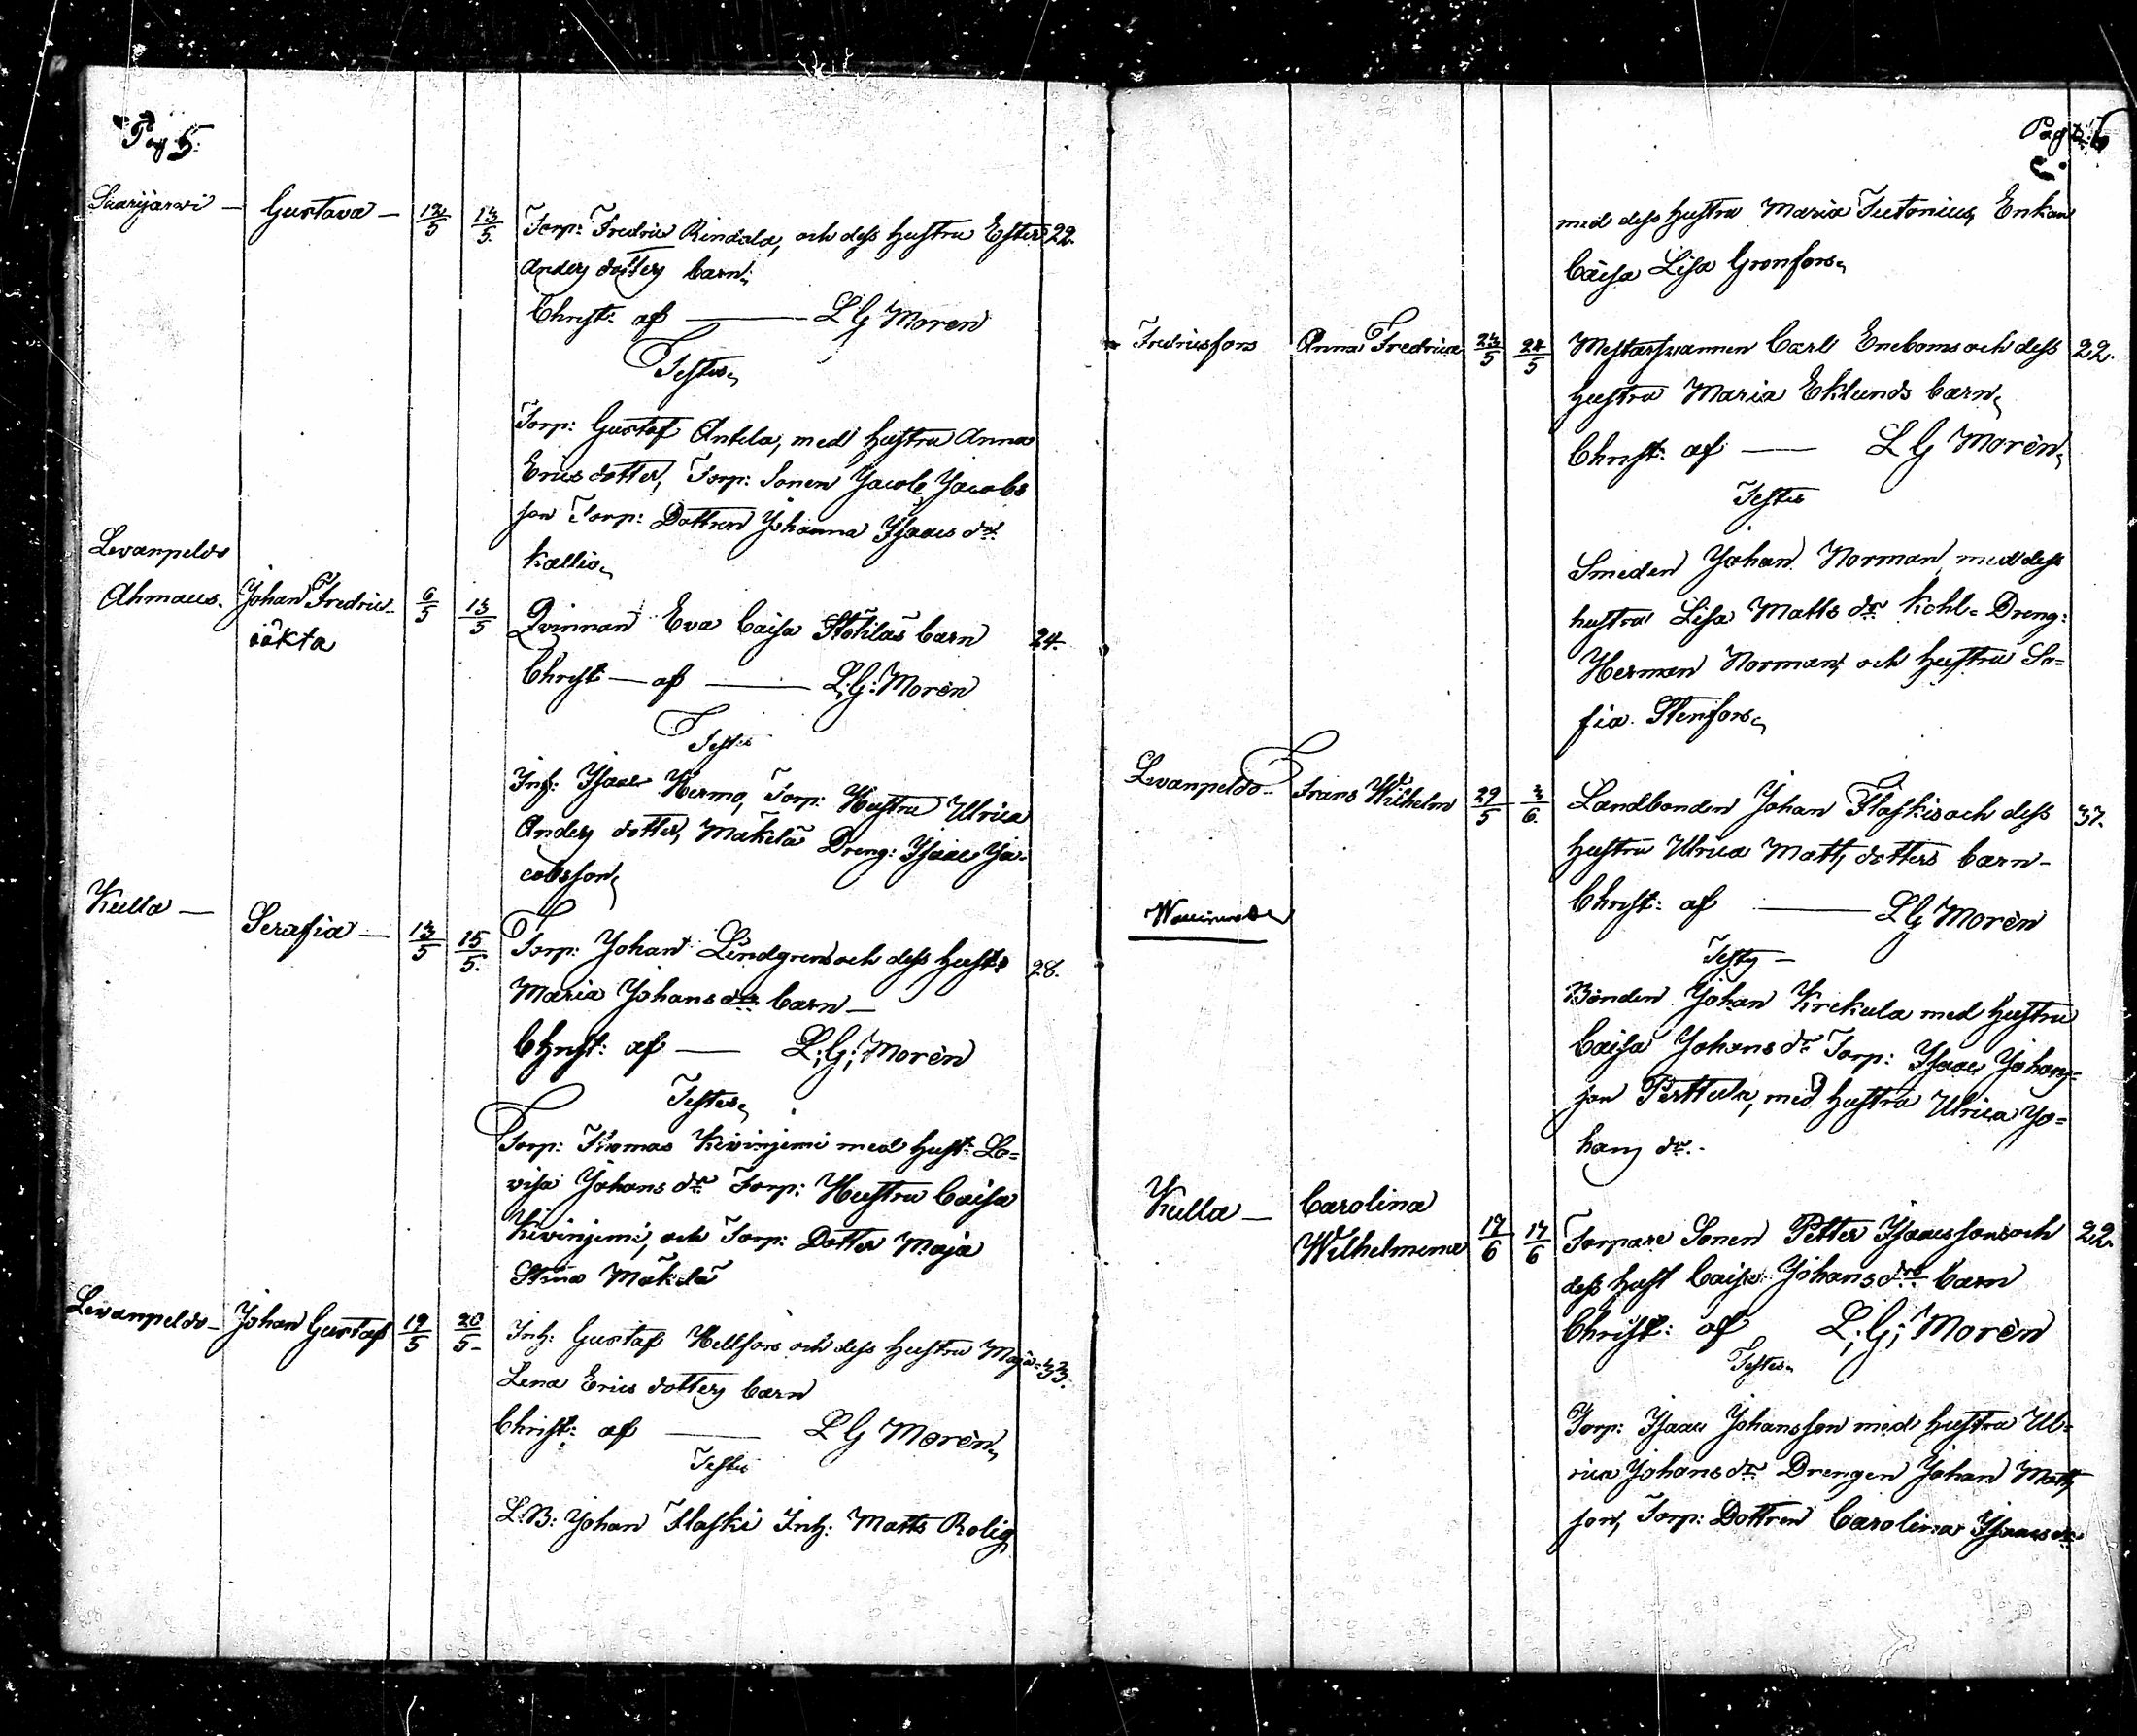 Pag 5.
Saarijärwi — Gustava — 12/5 13/5. Torp: Fredric Rindala, och dess hustru Ester 22.
Anders dotters barn.
Christ: af — L G Morèn
Testes.
Torp: Gustaf Antila, med hustru Anna
Erics dotter, Torp: Sonen Jacob Jacobs
son Torp: Dottren Johanna Isaacs dr
Kallio.
Levanpeldo
Ahmaus. Johan Fredric 6/5 13/5 Qvinnan Eva Caisa Stohilas barn 24.
oäkta
Christ — af — L: G: Morèn
Testes
Inh: Isaac Hermo, Torp: Hustru Ulrica
Anders dotter, Mäkelä Dreng: Isaac Ja-
cobsson,
Kulla — Serafia — 13/5 15/5. Torp: Johan Lindgrens och dess hust: 28.
Maria Johans drs barn —
Christ: af — L: G: Morèn
Testes.
Torp: Thomas Kivinjemi med hust: Lo=
visa Johans dr Torp: Hustru Caisa
Kivinjemi, och Torp: Dotter Maja
Stina Mäkelä
Levanpeldo — Johan Gustaf 19/5 20/5 Inh: Gustaf Hellfors och dess hustru Maja= 33.
Lena Erics dotters barn
Christ: af — L G Morèn,
Testes
L:B: Johan Flaski Inh: Matts Rolig
Pag: 6
med dess hustru Maria Teetonius, Enkan
Caisa Lisa Gronfors.
Fredricsfors Anna Fredrica 23/5 24/5 Mestarsvannen Carl Eneboms och dess 22.
hustru Maria Eklunds barn,
Christ: af — L G Morèn,
Testes
Smeden Johan Norman, med dess
hustru Lisa Matts dr Kohl= Dreng:
Herman Norman, och hustru So=
fia Stenfors,
Levanpeldo — Frans Wilhelm 29/5 3/6. Landbonden Johan Flaskis och dess 37.
hustru Ulrica Matts dotters barn —
Christ: af — L G Morèn
Testes —
Bonden Johan Krekula med hustru
Caisa Johans dr Torp: Isaac Johans=
son Perttula, med hustru Ulrica Jo=
hans dr.
Kulla — Carolina
Wilhelmina 17/6 17/6 Torpare Sonen Petter Isaacssons och 22.
dess hust Caisa Johans drs barn
Christ: af L: G: Morèn
Testes.
Torp: Isaac Johansson med hustru Ul=
rica Johans dr Drengen Johan Matts
son, Torp: Dottren Carolina Isaacs dr.